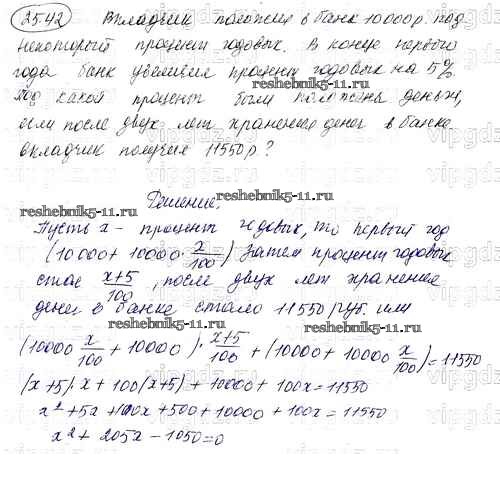 2542 Вкладчик положил в банк 10000р. под
некоторый процент годовых. В конце первого
года банк увеличил процент годовых на 5%
Под какой процент были положены деньги,
если после двух лет хранения денег в банке
вкладчик получил 11550р?
Решение:
Пусть x - процент годовых, то первый год
(10000+10000·x/100) Затем процент годовых
стал x+5/100, после двух лет хранения
денег в банке стало 11550 руб. или
(10000 x/100 + 10000)·x+5/100 + (10000+10000 x/100)=11550
(x+5)·x+100(x+5)+10000+100x=11550
x²+5x+100x+500+10000+100x=11550
x²+205x-1050=0
reshebnik5-11.ru
reshebnik5-11.ru
reshebnik5-11.ru
reshebnik5-11.ru
reshebnik5-11.ru
reshebnik5-11.ru